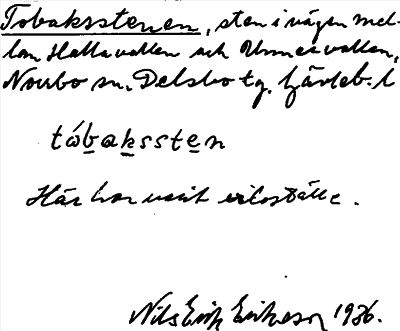 Tobaksstenen, sten i vägen mel-
lan Hallavallen och Unnesvallen,
Norrbo sn. Delsbo tg. Gävleb. l
tóbakssten
Här har varit viloställe.
Nils Erik Eriksson 1936.